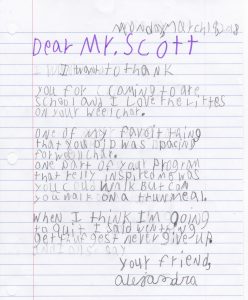 Monday March
Dear Mr. Scott
I want to thank
you for coming to are
school and I Love the
on your weelchar.
one of my favorit thing
that you did was
for weelchar.
one part of your program
that relly inspired me was
you could walk but con
you walk on a
When I think I'm going
to quit I said
never give up.
your friend,
alesandra